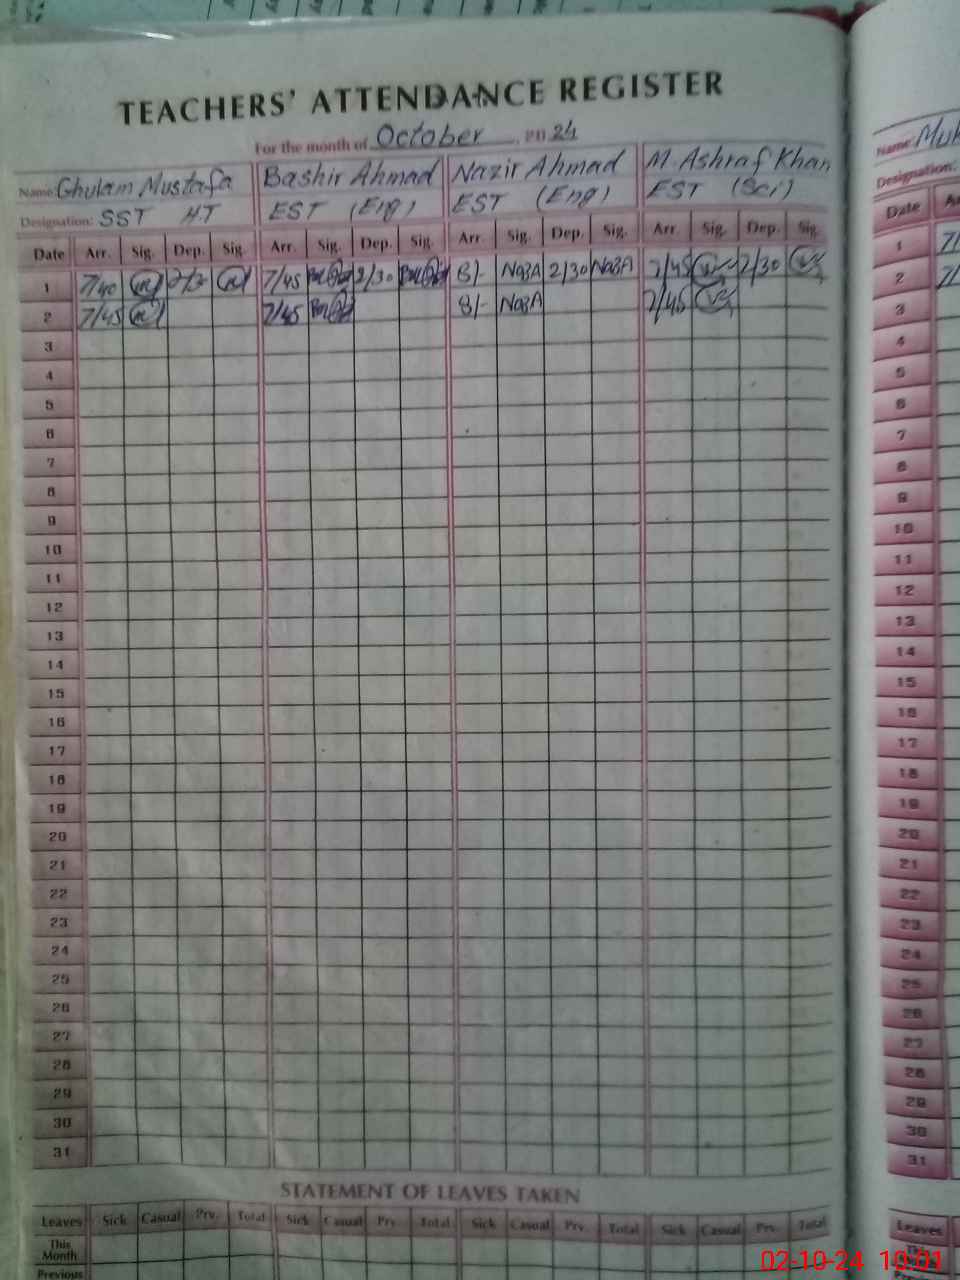 TEACHERS' ATTENDANCE REGISTER
For the month of October, 2024
Name: Ghulam Mustafa Bashir Ahmad Nazir Ahmad M. Ashraf Khan
Designation: SST HT EST (Eng) EST (Eng) EST (Sci)
Date Arr. Sig. Dep. Sig. Arr. Sig. Dep. Sig. Arr. Sig. Dep. Sig. Arr. Sig. Dep. Sig.
1 7/40 7/45 2/30 8/- 2/30 7/45 2/30
2 7/45 7/45 8/- 7/45
3
4
5
6
7
8
9
10
11
12
13
14
15
16
17
18
19
20
21
22
23
24
25
26
27
28
29
30
31
STATEMENT OF LEAVES TAKEN
Leaves Sick Casual Prv. Total Sick Casual Prv. Total Sick Casual Prv. Total Sick Casual Prv. Total
This Month
Previous
Name:
Designation:
Date
1
2
3
4
5
6
7
8
9
10
11
12
13
14
15
16
17
18
19
20
21
22
23
24
25
26
27
28
29
30
31
Leaves
02-10-24 10:01